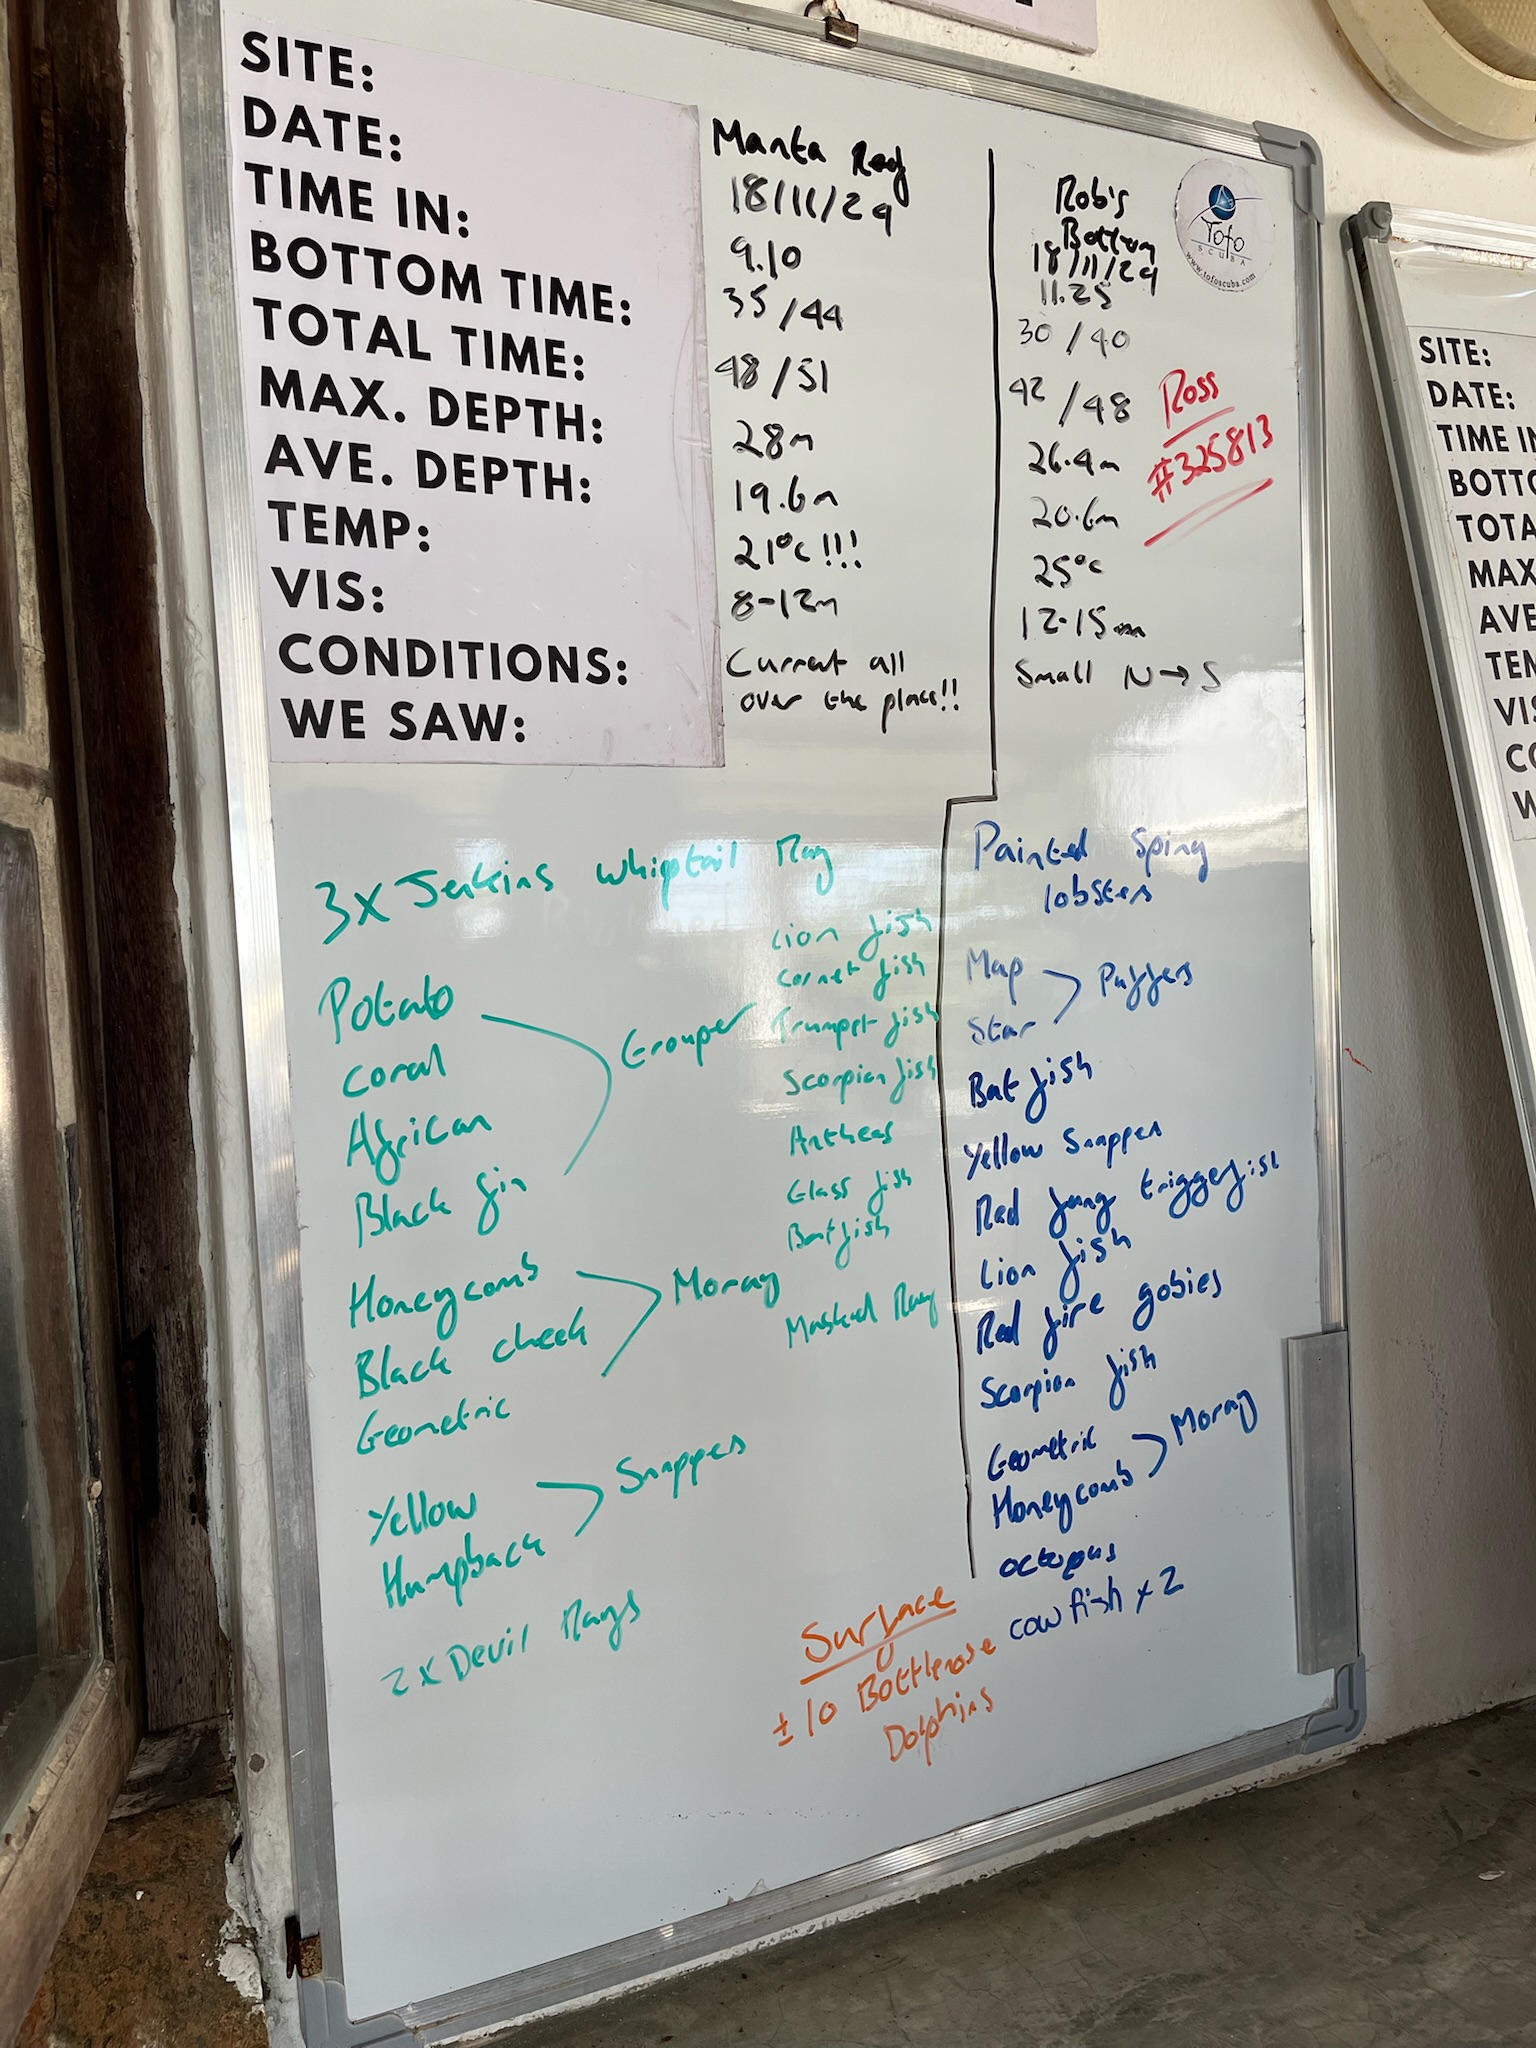 SITE:
DATE:
TIME IN:
BOTTOM TIME:
TOTAL TIME:
MAX. DEPTH:
AVE. DEPTH:
TEMP:
VIS:
CONDITIONS:
WE SAW:
Manta Reef
18/11/24
9.10
35/44
48/51
28m
19.6m
21°c!!!
8-12m
Current all
over the place!!
Rob's
Bottom
18/11/24
11.25
30/40
42/48
26.4m
20.6m
25°c
12-15m
Small N→S
Tofo
SCUBA
www.tofoscuba.com
Ross
#325813
3x Jenkins whiptail Ray
Potato
Coral
African
Black fin
Grouper
Honeycomb
Black cheek
Geometric
Moray
Yellow
Humpback
Snappers
2x Devil Rays
Lion fish
Cornet fish
Trumpet fish
Scorpion fish
Antheas
Glass fish
Batfish
Masked Ray
Painted Spiny
lobsters
Map
Star
Puffers
Bat fish
Yellow Snapper
Red fang triggerfish
Lion fish
Red fire gobies
Scorpion fish
Geometric
Honeycomb
Moray
octopus
cow fish x 2
Surface
± 10 Bottlenose
Dolphins
SITE:
DATE:
TIME IN
BOTTO
TOTA
MAX
AVE
TEM
VIS
CO
W